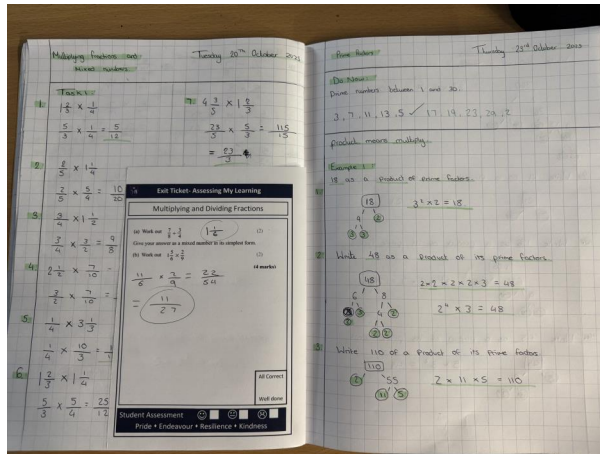 Multiplying fractions and
mixed numbers
Tuesday 20th October 2025
Task 1
1 1 2/3 × 1/4
5/3 × 1/4 = 5/12
2 2/5 × 1 1/4
2/5 × 5/4 = 10/20
3 3/4 × 1 1/2
3/4 × 3/2 = 9/8
4 × 7/10
× 7/10 =
5 1/4 × 3 1/3
1/4 × 10/3 =
6 1 2/3 × 1 1/4
5/3 × 5/4 = 25/12
7. 4 3/5 × 1 2/3
23/5 × 5/3 = 115/15
= 23/3
Exit Ticket- Assessing My Learning
Multiplying and Dividing Fractions
(a) Work out 1 1/6 (2)
Give your answer as a mixed number in its simplest form.
(b) Work out 1 5/6 × 2/9 (2)
(4 marks)
11/6 × 2/9 = 22/54
= 11/27
All Correct
Well done
Student Assessment
Pride • Endeavour • Resilience • Kindness
Prime factors
Thursday October 2025
Do Now
Prime numbers between 1 and 30.
3, 7, 11, 13, 5 ✓ 17, 19, 23, 29, 2
product means multiply.
Example 1
18 as a product of prime factors.
18
3² × 2 = 18
9 2
3 3
2 Write 48 as a product of its prime factors.
48
2 × 2 × 2 × 2 × 3 = 48
6 8
3 4 2
2⁴ × 3 = 48
2 2 2
3 Write 110 of a product of its prime factors
110
2 55
2 × 11 × 5 = 110
11 5